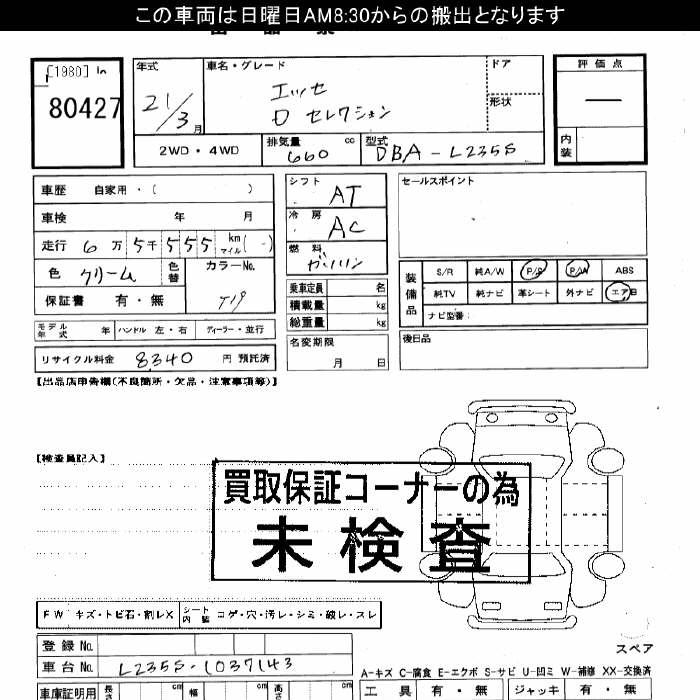 この車両は日曜日AM8:30からの搬出となります
[1980] ln
80427
年式 21/3月
車名・グレード
エッセ
D セレクション
ドア
形状
評価点
―
内装
2WD・4WD
排気量 660 cc
型式 DBA-L235S
車歴 自家用・( )
車検 年 月
走行 6万5千555 km マイル (-)
色 クリーム 色替
カラーNo. T19
保証書 有・無
モデル年式 年 ハンドル 左・右 ディーラー・並行
リサイクル料金 8340 円 預託済
シフト AT
冷房 AC
燃料 ガソリン
乗車定員 名
積載量 kg
総重量 kg
名変期限
月 日
セールスポイント
装備品
S/R 純A/W P/S P/W ABS
純TV 純ナビ 革シート 外ナビ エアB
ナビ型番:
後日品
【出品店申告欄(不良箇所・欠品・注意事項等)】
【検査員記入】
買取保証コーナーの為
未検査
FW キズ・トビ石・割レX
シート内装 コゲ・穴・汚レ・シミ・破レ・スレ
スペア
登録No.
車台No. L235S-1037143
A-キズ C-腐食 E-エクボ S-サビ U-凹ミ W-補修 XX-交換済
車庫証明用 長さ cm 幅 cm 高さ cm
工具 有・無 ジャッキ 有・無